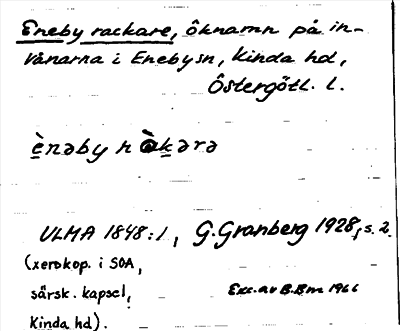 Eneby rackare, öknamn på in-
vånarna i Enebysn, Kinda hd,
Östergötl. l.
ènəby ràkərə
ULMA 1848:1, G. Granberg 1928, s. 2.
(xerokop. i SOA,
särsk. kapsel,
Kinda hd).
Exc. av B.Bm 1966